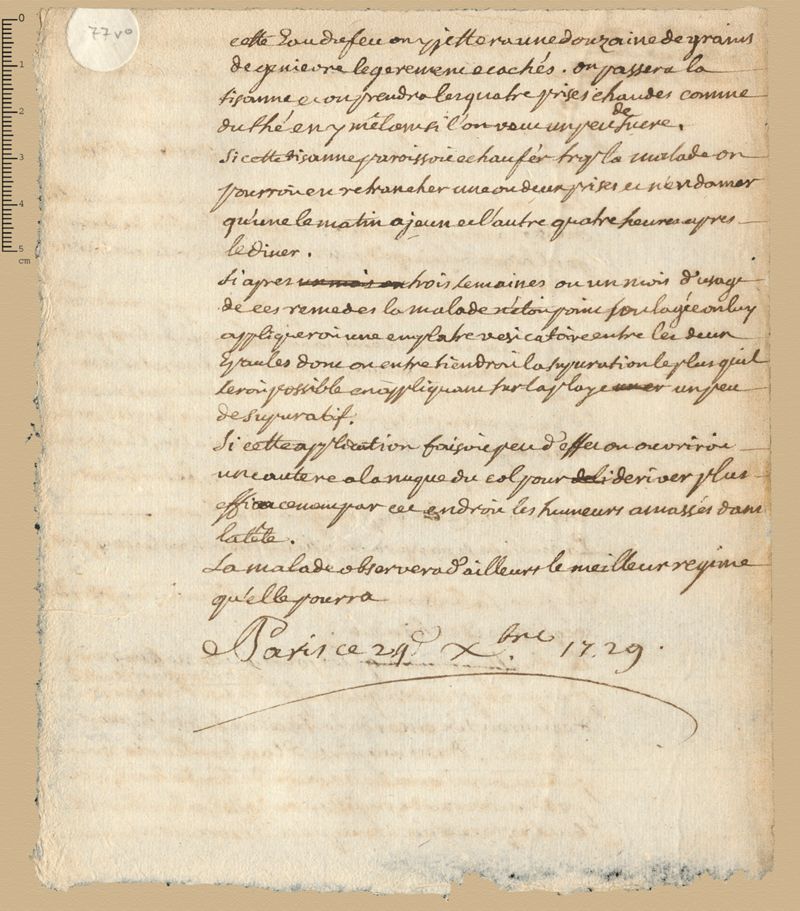 77 vo
cette Eau du feu on y jettera une douzaine de grains
de genievre legerement ecachés. on passera la
tisanne et on prendra les quatre prises chaudes comme
du thé en y mêlant si l'on veut un peu de sucre.
Si cette tisanne paroissoit echaufér trop la malade on
pourroit en retrancher une ou deux prises et n'en donner
qu'une le matin a jeun et l'autre quatre heures apres
le diner.
Si apres un mois ou trois semaines ou un mois d'usage
de ces remedes la malade n'etoit point soulagée on luy
appliqueroit une emplatre vesicatoire entre les deux
Epaules dont on entretiendroit la supuration le plus qu'il
seroit possible en appliquant sur la playe un peu
de supuratif.
Si cette application faisoit peu d'effet on ouvriroit
un cautere a la nuque du col pour deriver plus
efficacement par cet endroit les humeurs amassés dans
la tête.
La malade observera d'ailleurs le meilleur regime
qu'elle pourra
a Paris ce 29e Xbre 1729.
0
1
2
3
4
5
cm